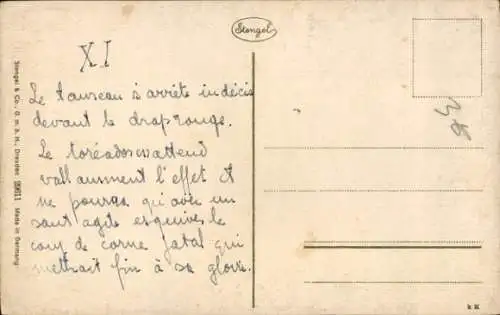 Stengel
XI
Le taureau s'arrête indécis
devant le drap rouge.
Le toréador attend
vaillamment l'effet et
ne pourra qu'avec un
saut agile esquiver le
coup de corne fatal qui
mettrait fin à sa gloire.
Stengel & Co., G. m. b. H., Dresden Made in Germany